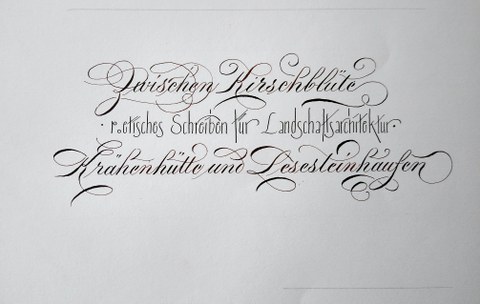 Zwischen Kirschblüte
· poetisches Schreiben für Landschaftsarchitektur ·
Krähenhütte und Lesesteinhaufen